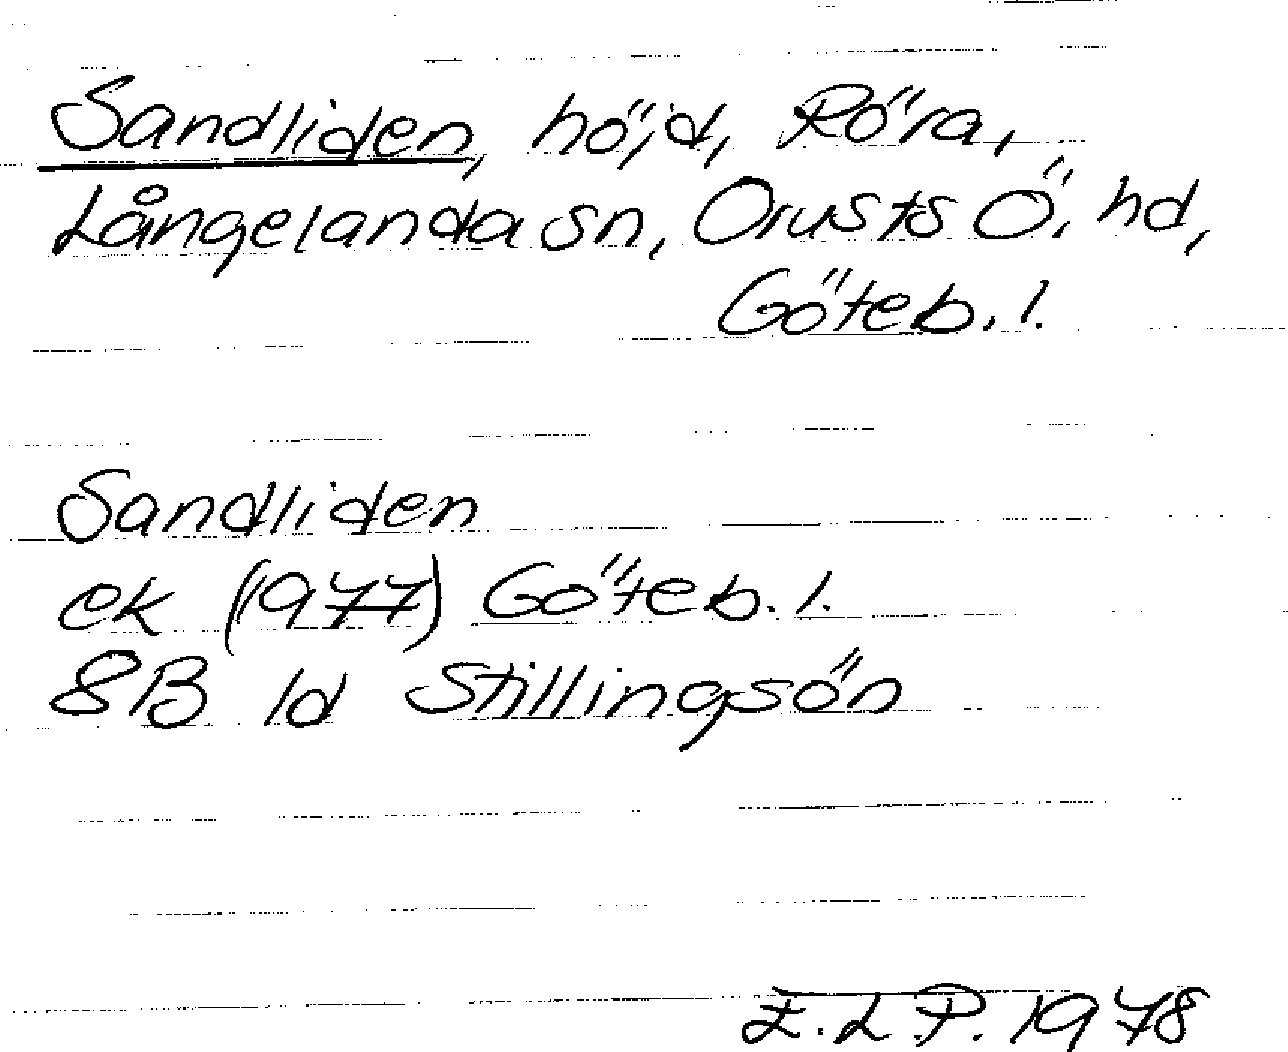 Sandliden, höjd, Röra,
Långelanda sn, Orusts Ö. hd,
Göteb. l.
Sandliden
ek (1977) Göteb. l.
8B 1d Stillingsön
E.L.P. 1978